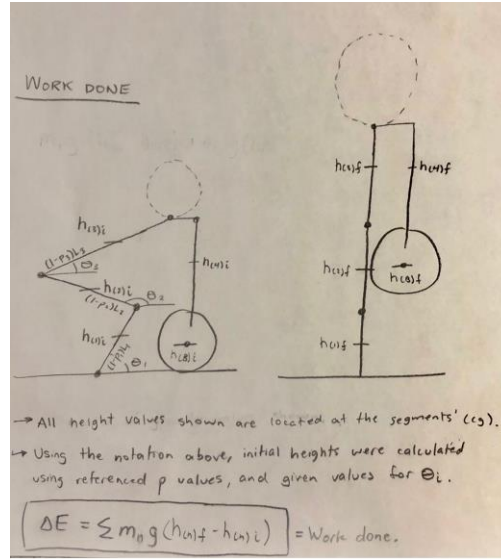 WORK DONE
h(3)f
h(4)f
h(3)i
(1-P3)L3
θ3
h(4)i
h(2)i
(1-P2)L2
θ2
h(2)f
h(1)i
(1-P1)L1
θ1
h(1)f
→ All height values shown are located at the segments' (cg).
→ Using the notation above, initial heights were calculated
using referenced p values, and given values for θi.
ΔE = Σ mₙg(h(n)f - h(n)i) = Work done.